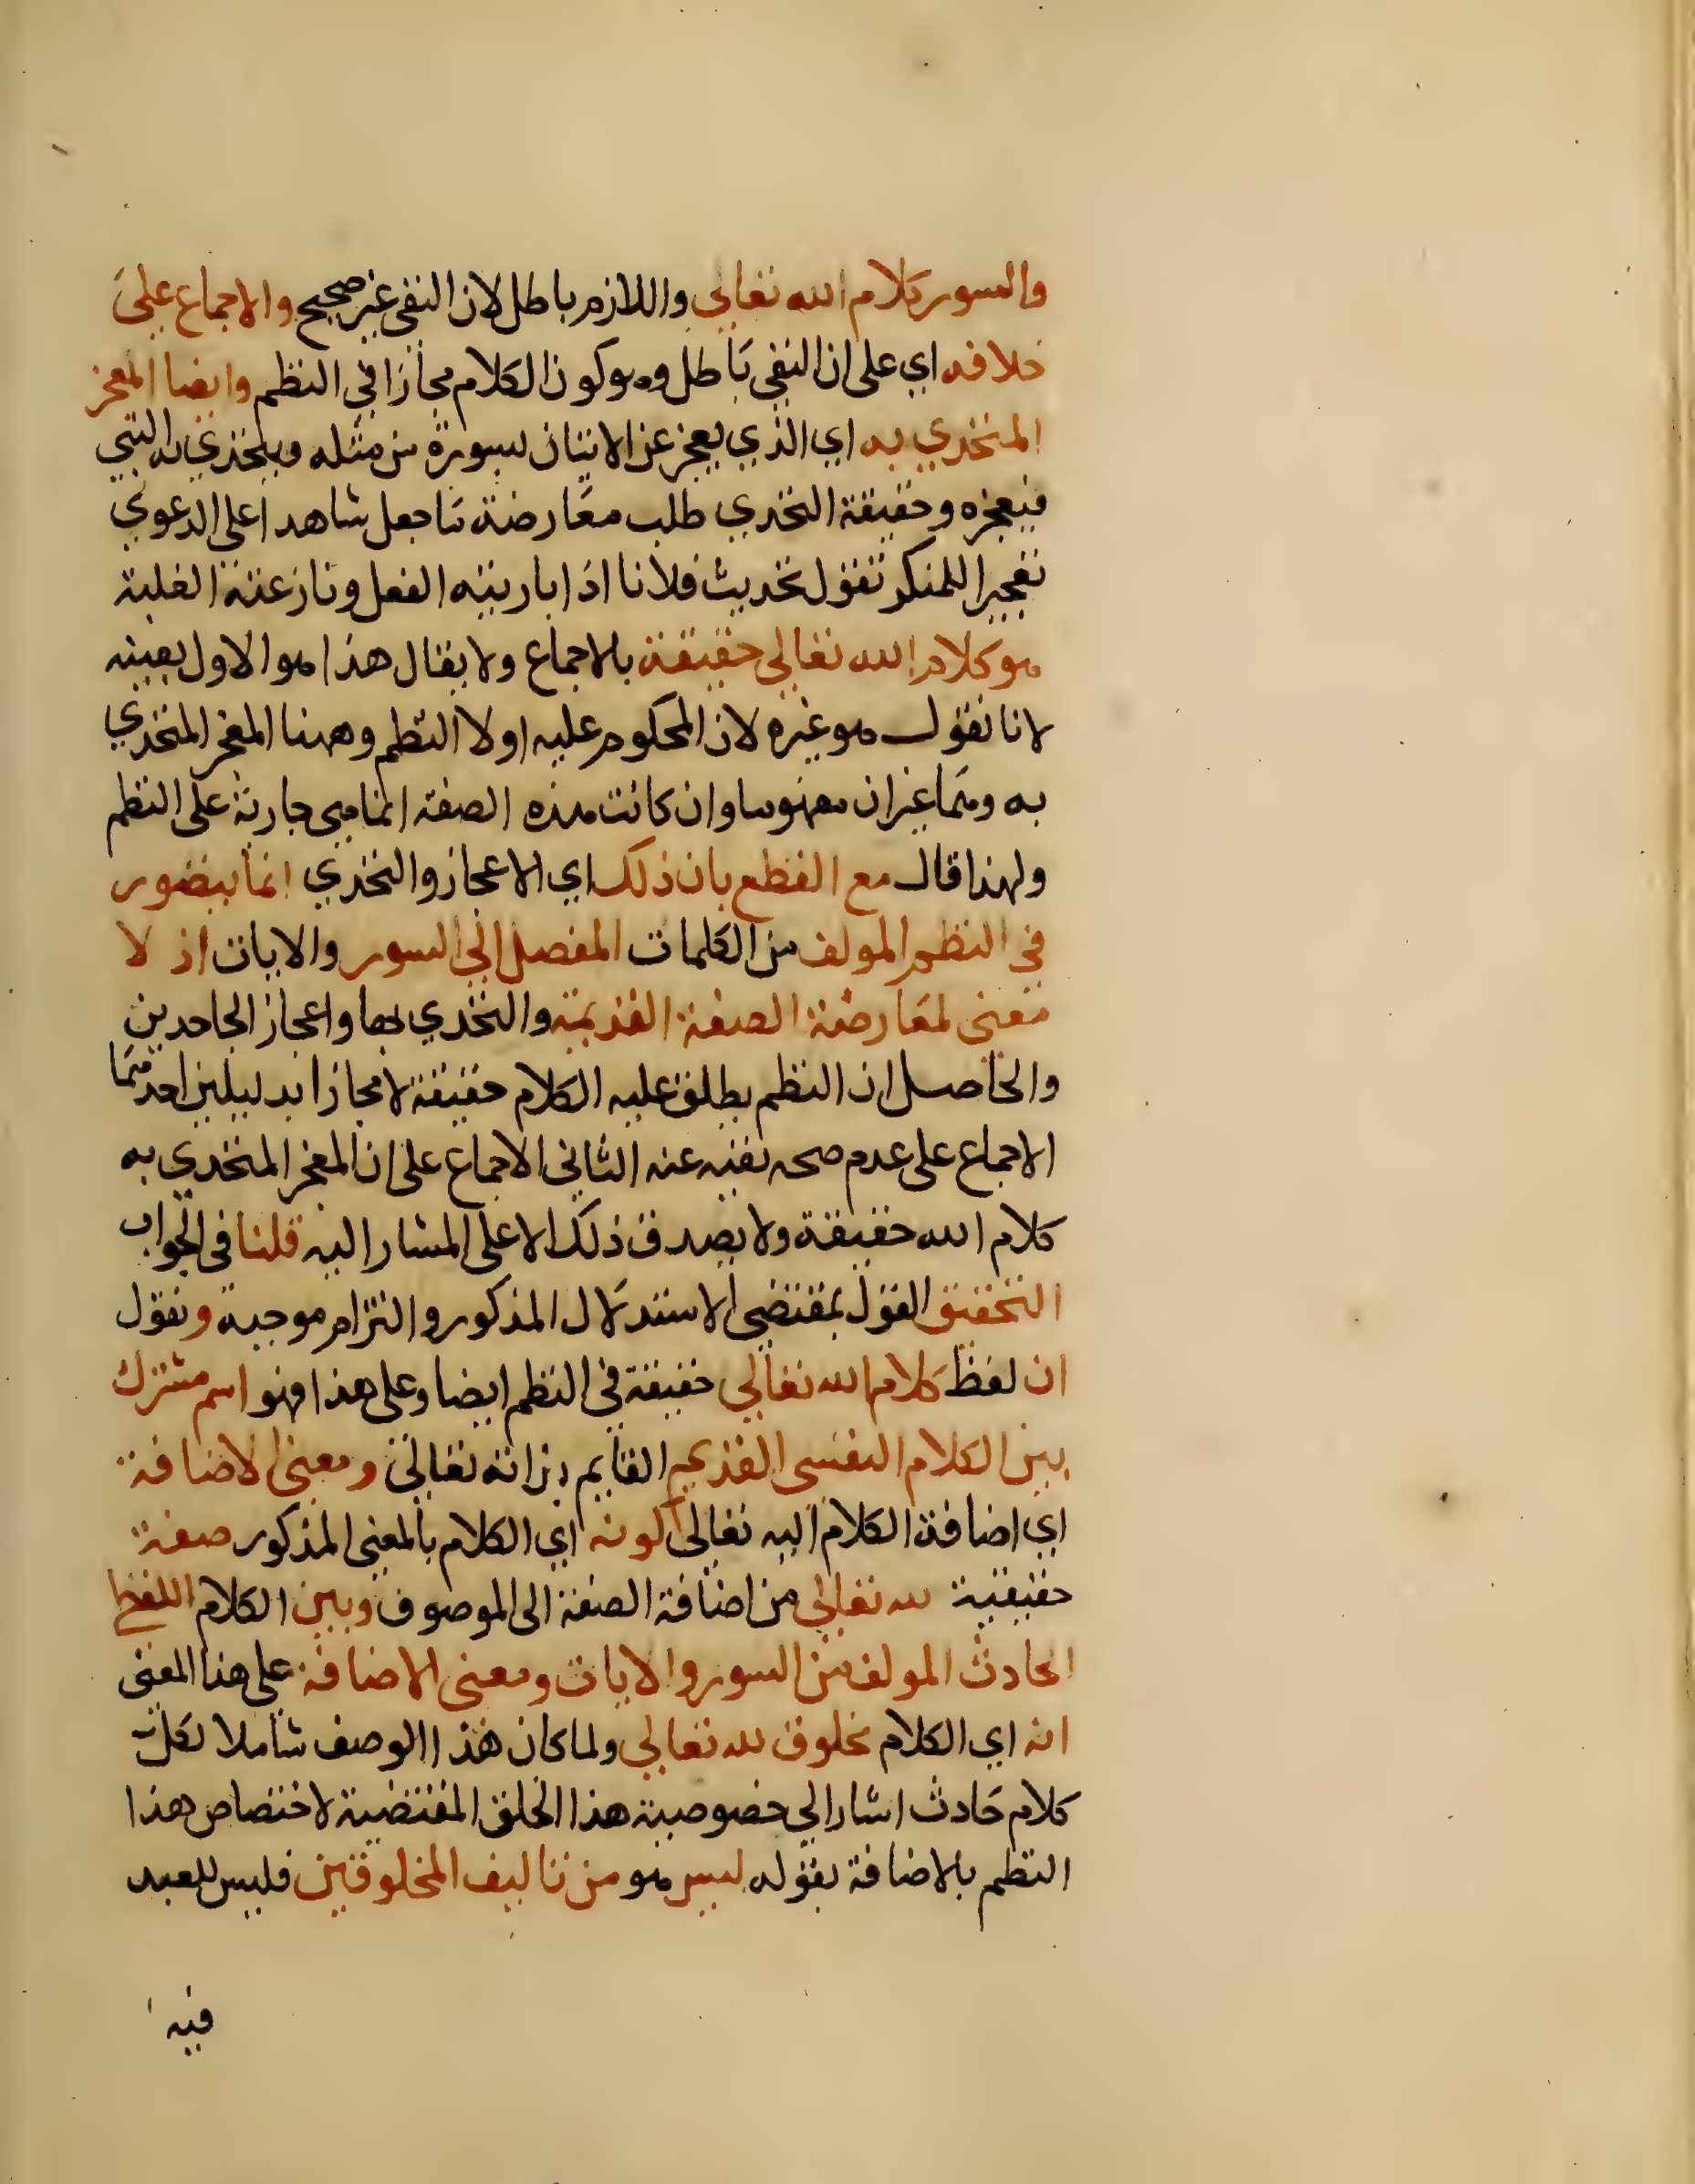 والسور كلام الله تعالى واللازم باطل لان النفى غير صحيح والاجماع على
خلافه اي على ان النفى باطل وهو كون الكلام مجازا في النظم وايضا المعجز
المتحدي به اي الذي يعجز عن الاتيان بسورة من مثله ويتحدي به النبي
فيعجزه وحقيقة التحدي طلب معارضة ما جعل شاهدا على الدعوي
تعجيزا للمنكر تقول تحديت فلانا اذا باريته الفعل ونازعته الغلبة
هو كلام الله تعالى حقيقة بالاجماع ولا يقال هذا هو الاول بعينه
لانا نقول هو غيره لان المحكوم عليه اولا النظم وههنا المعجز المتحدي
به وهما غيران مفهوما وان كانت هذه الصفة انما هي جارية على النظم
ولهذا قال مع القطع بان ذلك اي الاعجاز والتحدي انما يتصور
في النظم المولف من الكلمات المفصل الى السور والايات اذ لا
معنى لمعارضة الصفة القديمة والتحدي بها واعجاز الجاحدين
والحاصل ان النظم يطلق عليه الكلام حقيقة لا مجازا بدليلين احدهما
الاجماع على عدم صحه نفيه عنه الثاني الاجماع على ان المعجز المتحدي به
كلام الله حقيقة ولا يصدق ذلك الا على المشار اليه قلنا في الجواب
التحقيق القول بمقتضى الاستدلال المذكور والتزام موجبه ونقول
ان لفظ كلام الله تعالى حقيقة في النظم ايضا وعلى هذا فهو اسم مشترك
بين الكلام النفسي القديم القايم بذاته تعالى ومعنى الاضافة
اي اضافة الكلام اليه تعالى كونه اي الكلام بالمعنى المذكور صفة
حقيقية لله تعالى من اضافة الصفة الى الموصوف وبين الكلام اللفظي
الحادث المولف من السور والايات ومعنى الاضافة على هذا المعنى
انه اي الكلام مخلوق لله تعالى ولما كان هذا الوصف شاملا لكل
كلام حادث اشار الى خصوصية هذا الخلق المقتضية لاختصاص هذا
النظم بالاضافة بقوله ليس هو من تاليف المخلوقين فليس للعبد
فيه